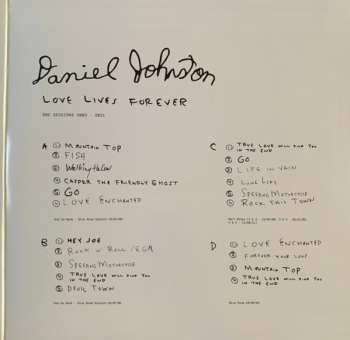 Daniel Johnston
LOVE LIVES FOREVER
BBC SESSIONS 2003 - 2011
A
① MOUNTAIN TOP
② FISH
③ Walking the Cow
④ CASPER THE FRIENDLY GHOST
⑤ GO
⑥ LOVE ENCHANTED
B
① HEY JOE
② ROCK N ROLL / EGA
③ SPEEDING MOTORCYCLE
④ TRUE LOVE WILL FIND YOU
IN THE END
⑤ DEVIL TOWN
C
① TRUE LOVE WILL FIND YOU
IN THE END
② GO
③ LIFE IN VAIN
④ LONG LIFE
⑤ SPEEDING MOTORCYCLE
⑥ ROCK THIS TOWN
D
① LOVE ENCHANTED
② FOREVER YOUR LOVE
③ MOUNTAIN TOP
④ TRUE LOVE WILL FIND YOU
IN THE END